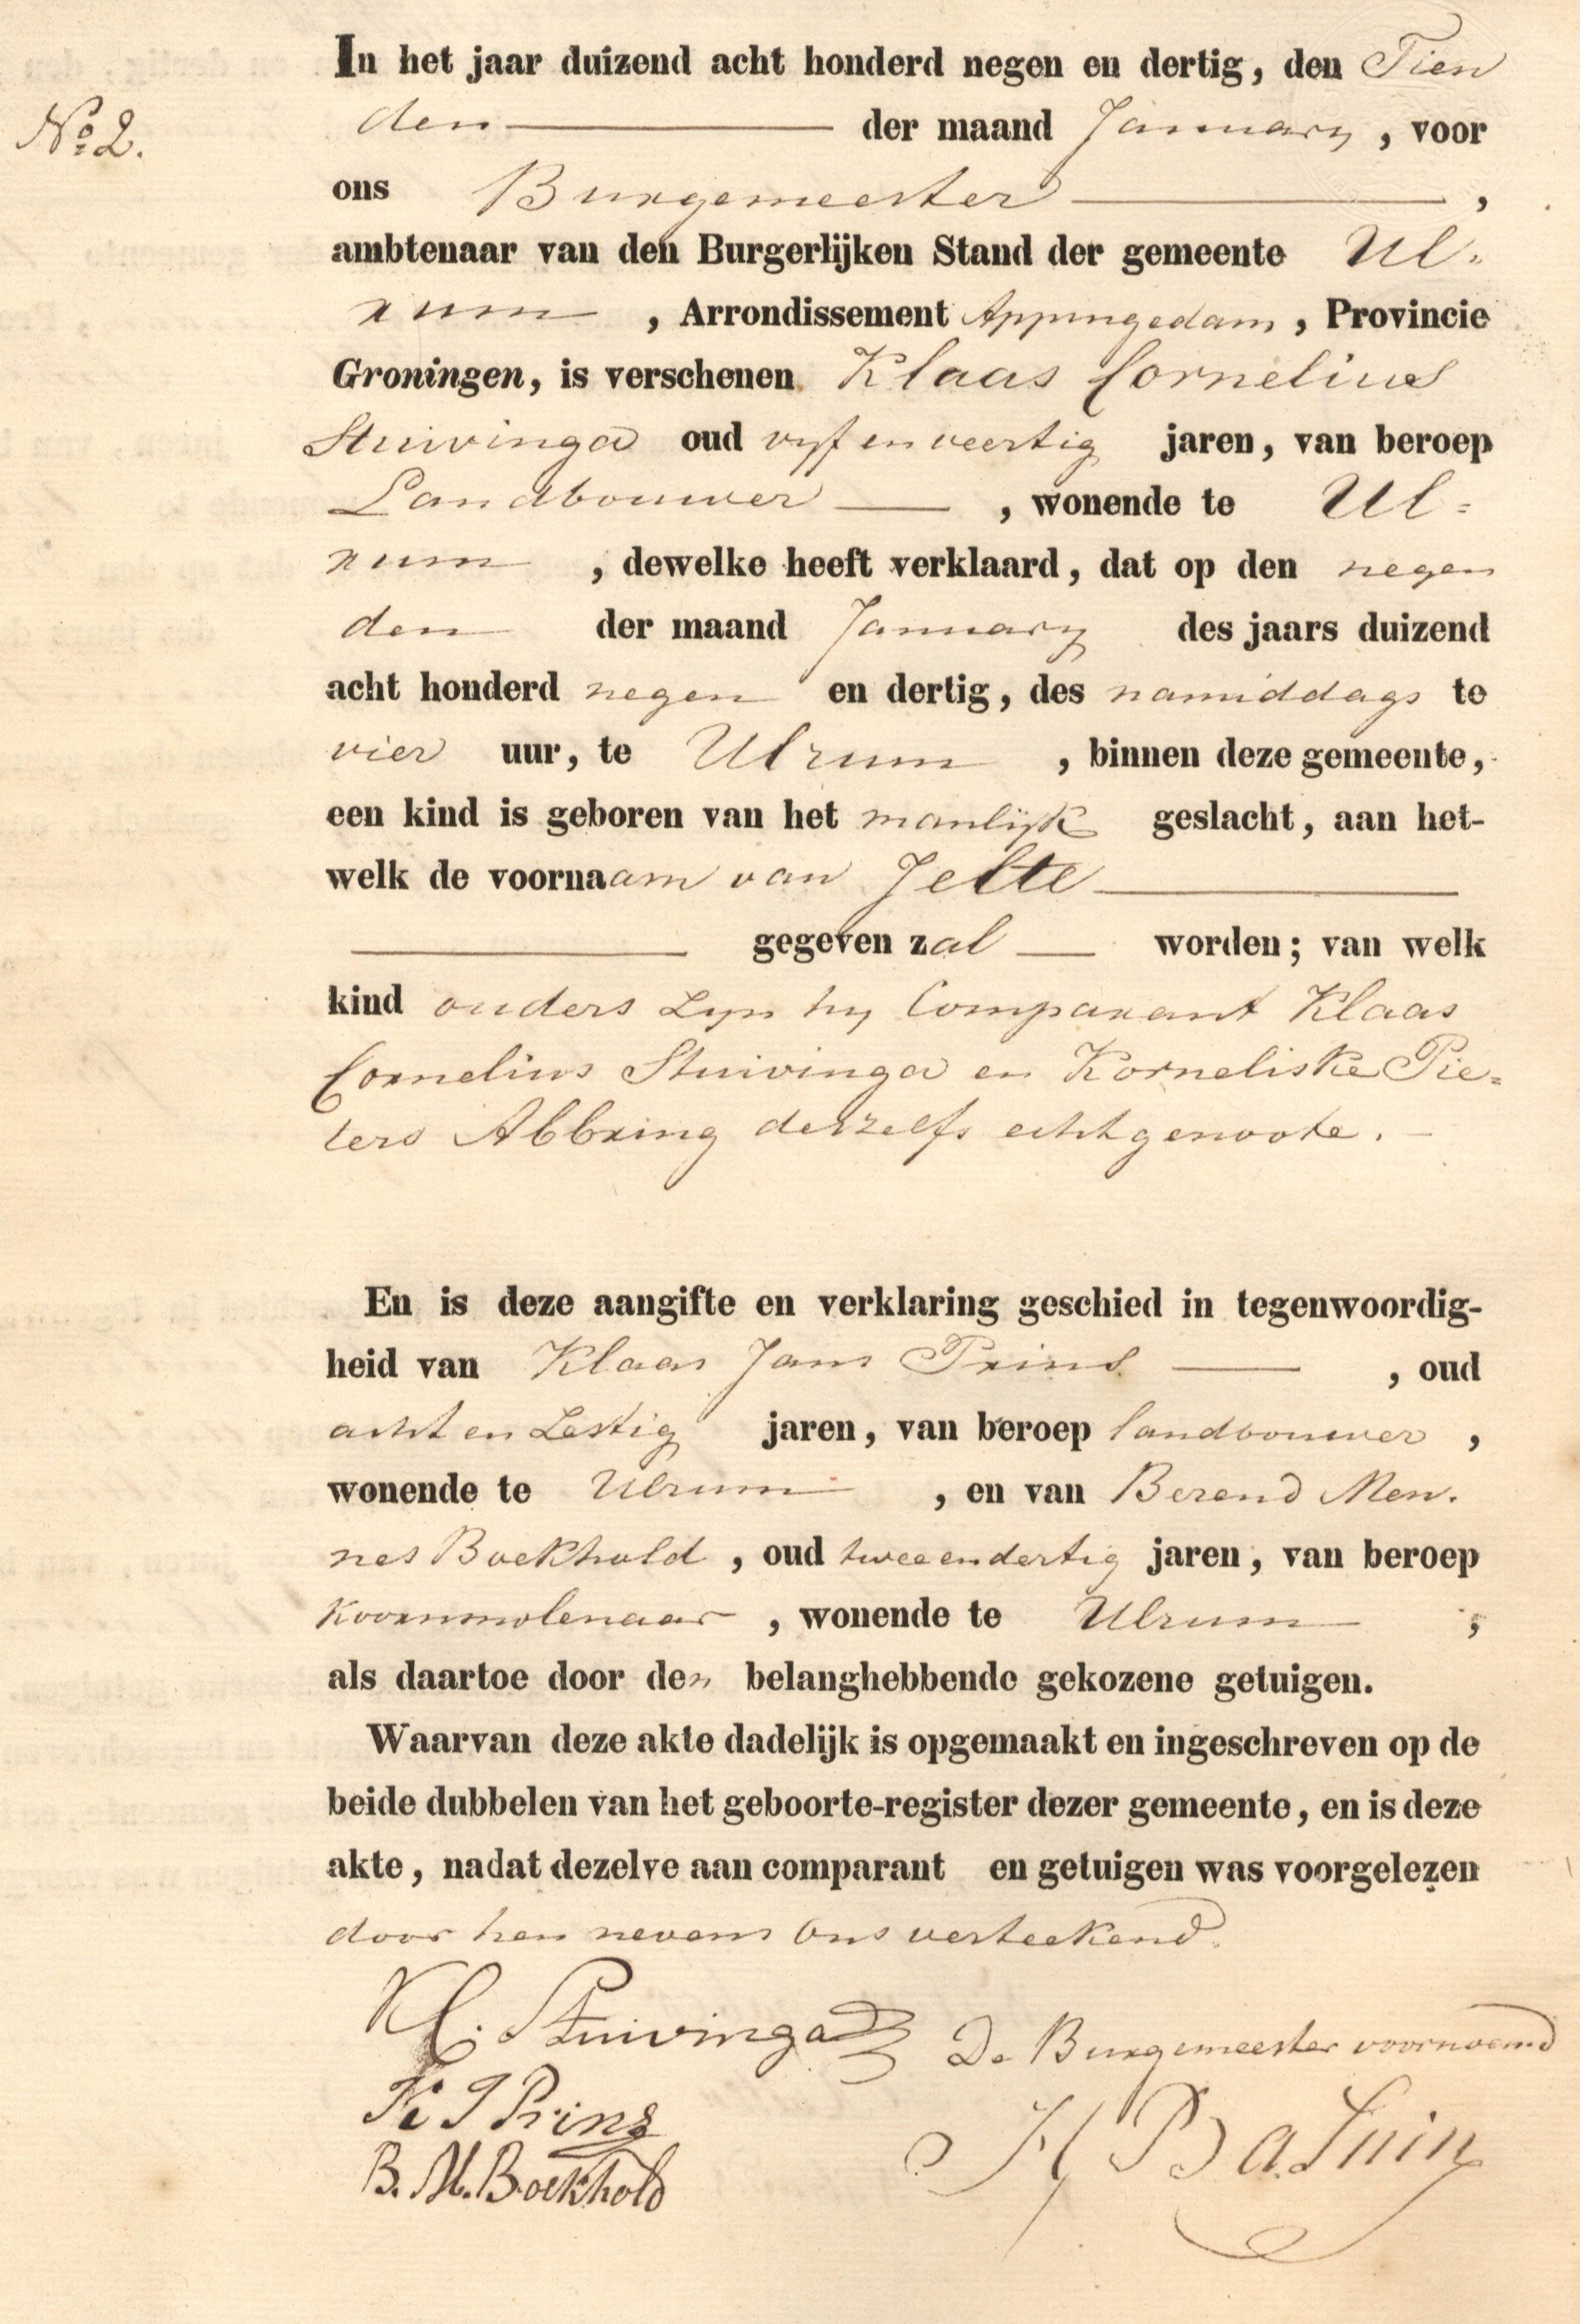 In het jaar duizend acht honderd negen en dertig, den Tien
den der maand January, voor
No. 2.
ons Burgemeester,
ambtenaar van den Burgerlijken Stand der gemeente Ul-
rum, Arrondissement Appingedam, Provincie
Groningen, is verschenen Klaas Cornelius
Stuivinga oud vyf en veertig jaren, van beroep
Landbouwer, wonende te Ul=
rum, dewelke heeft verklaard, dat op den negen
den der maand January des jaars duizend
acht honderd negen en dertig, des namiddags te
vier uur, te Ulrum, binnen deze gemeente,
een kind is geboren van het manlijk geslacht, aan het-
welk de voornaam van Jelte
gegeven zal worden; van welk
kind ouders Zyn hy Comparant Klaas
Cornelius Stuivinga en Korneliske Pie=
ters Abbring deszelfs echtgenoote.
En is deze aangifte en verklaring geschied in tegenwoordig-
heid van Klaas Jans Prins, oud
acht en Zestig jaren, van beroep landbouwer,
wonende te Ulrum, en van Berend Men-
nes Boekhold, oud twee en dertig jaren, van beroep
Koornmolenaar, wonende te Ulrum,
als daartoe door den belanghebbende gekozene getuigen.
Waarvan deze akte dadelijk is opgemaakt en ingeschreven op de
beide dubbelen van het geboorte-register dezer gemeente, en is deze
akte, nadat dezelve aan comparant en getuigen was voorgelezen
door hen nevens ons verteekend.
K C. Stuivinga De Burgemeester voornoemd
K J Prins
B. M. Boekhold